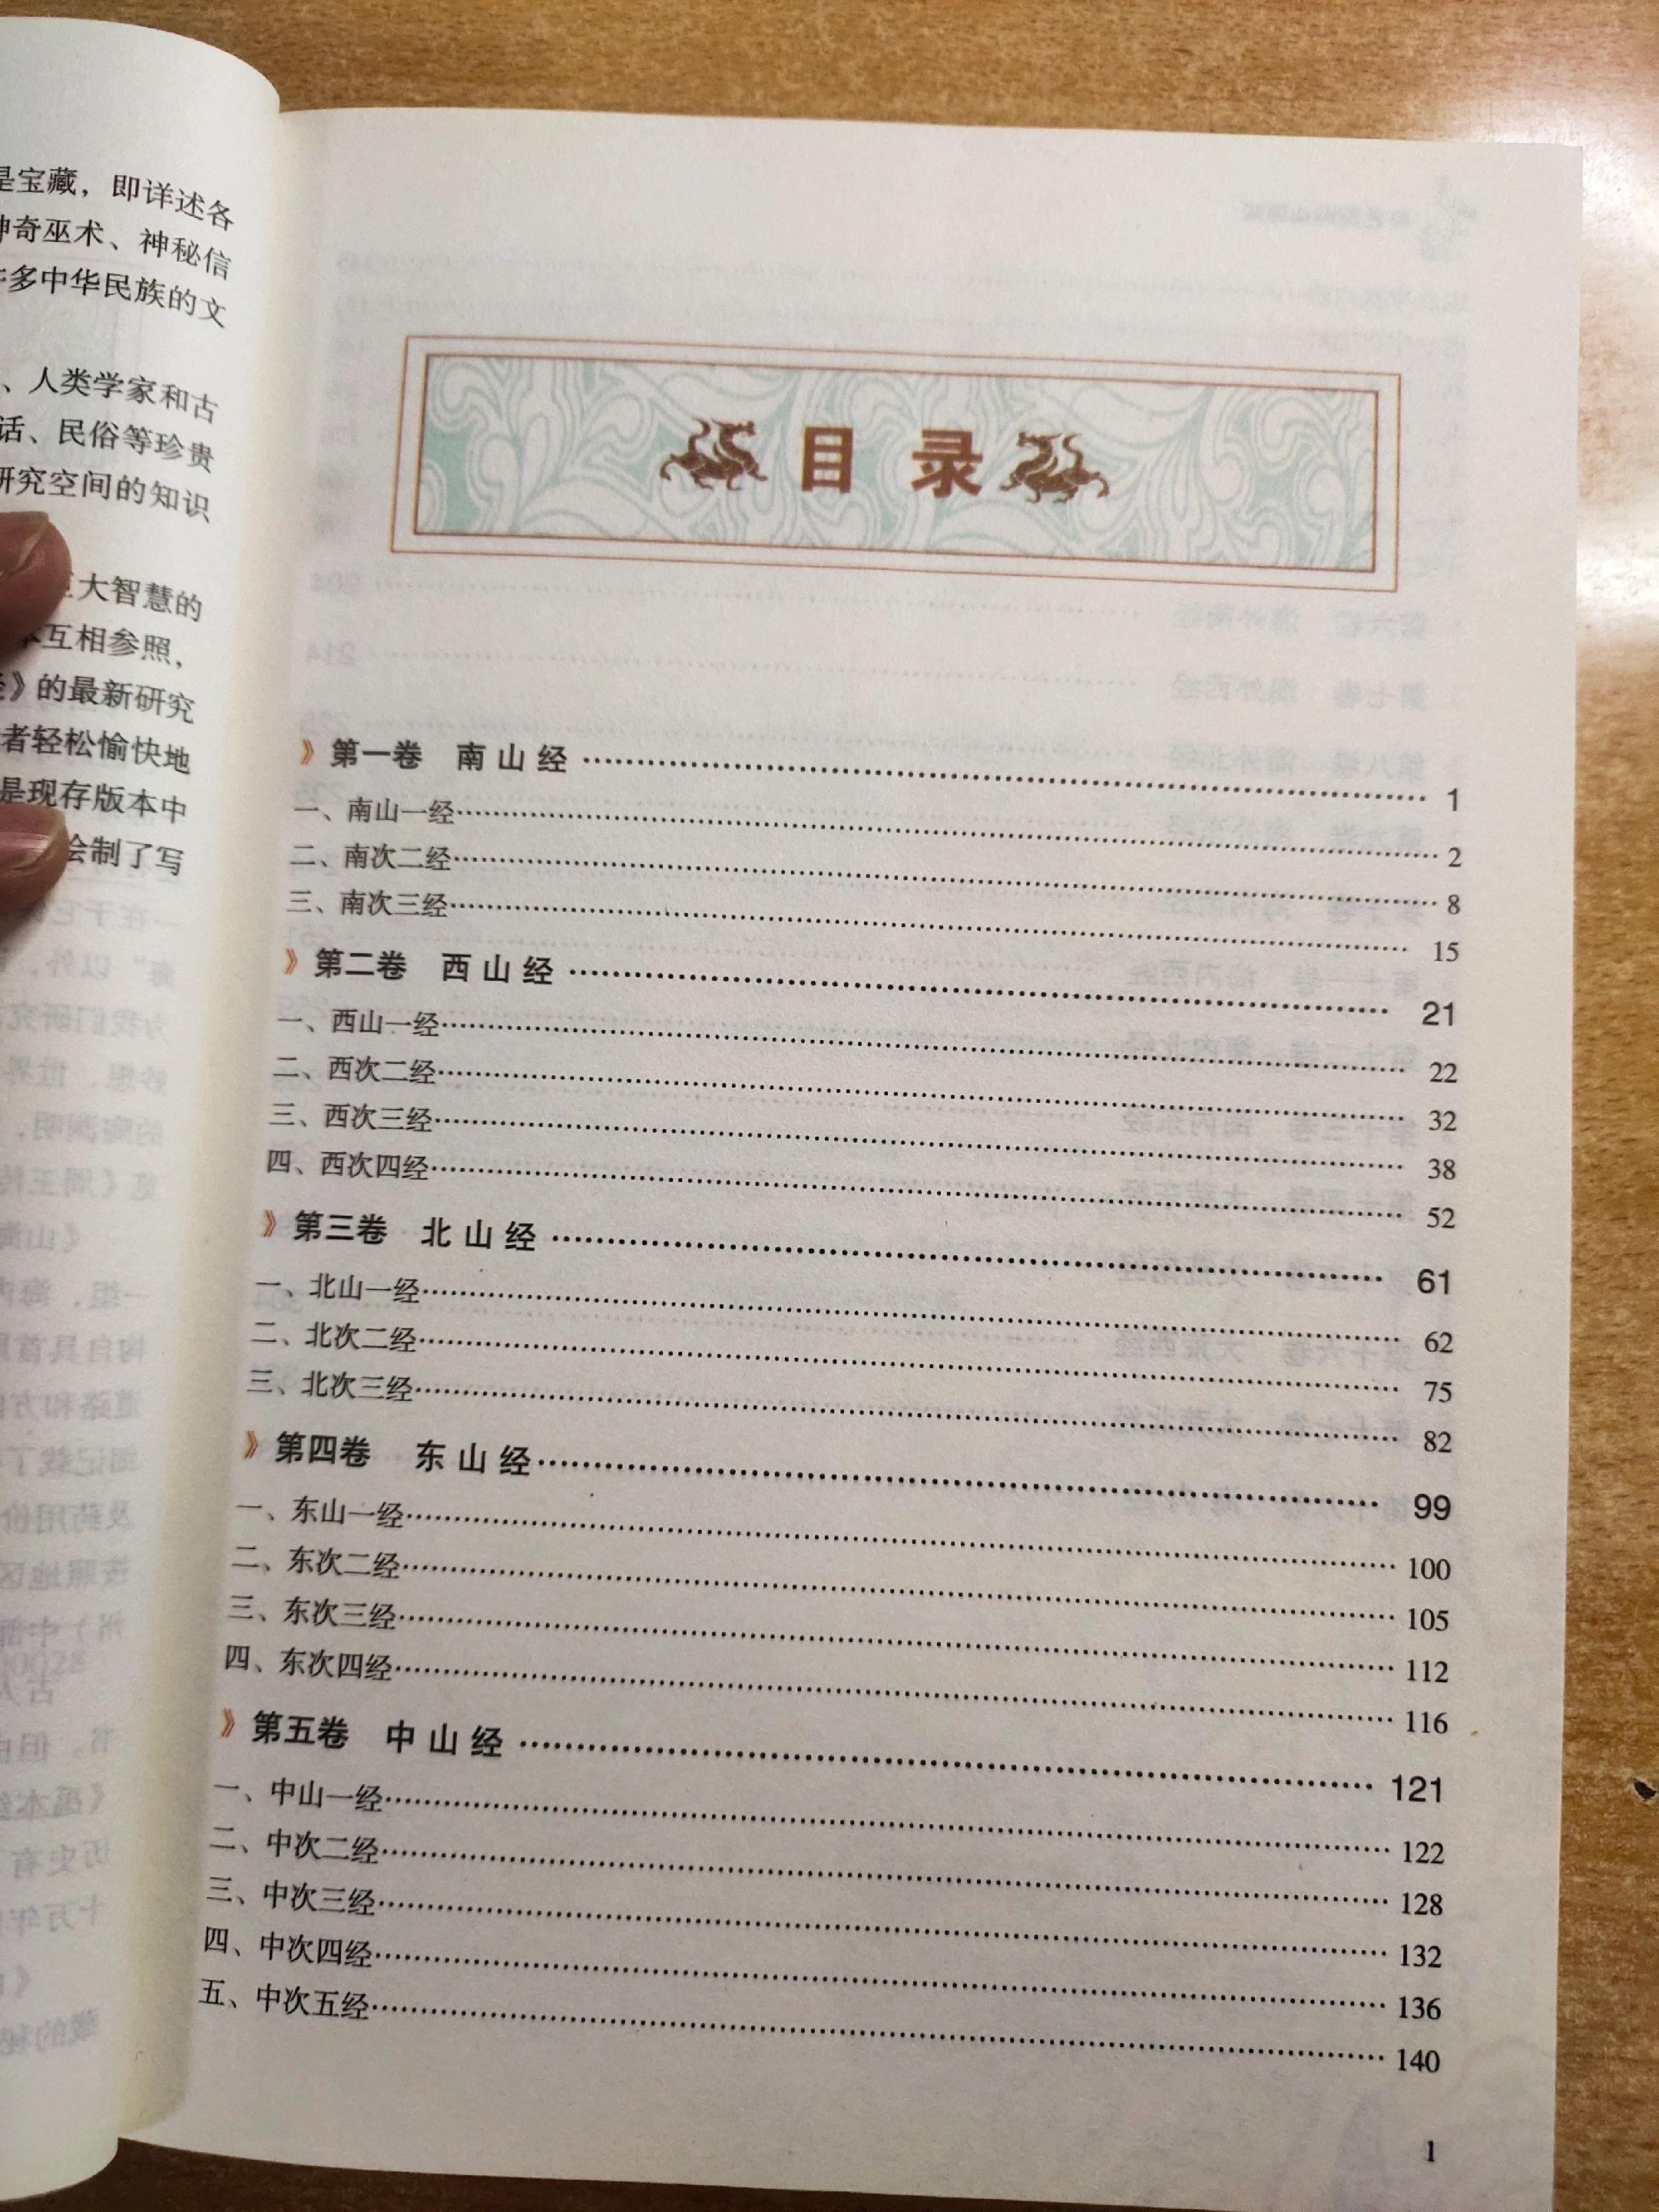 是宝藏，即详述各
神奇巫术、神秘信
多中华民族的文
、人类学家和古
话、民俗等珍贵
研究空间的知识
大智慧的
互相参照，
》的最新研究
者轻松愉快地
是现存版本中
绘制了写
目录
》第一卷 南山经 …… 1
一、南山一经 …… 2
二、南次二经 …… 8
三、南次三经 …… 15
》第二卷 西山经 …… 21
一、西山一经 …… 22
二、西次二经 …… 32
三、西次三经 …… 38
四、西次四经 …… 52
》第三卷 北山经 …… 61
一、北山一经 …… 62
二、北次二经 …… 75
三、北次三经 …… 82
》第四卷 东山经 …… 99
一、东山一经 …… 100
二、东次二经 …… 105
三、东次三经 …… 112
四、东次四经 …… 116
》第五卷 中山经 …… 121
一、中山一经 …… 122
二、中次二经 …… 128
三、中次三经 …… 132
四、中次四经 …… 136
五、中次五经 …… 140
1